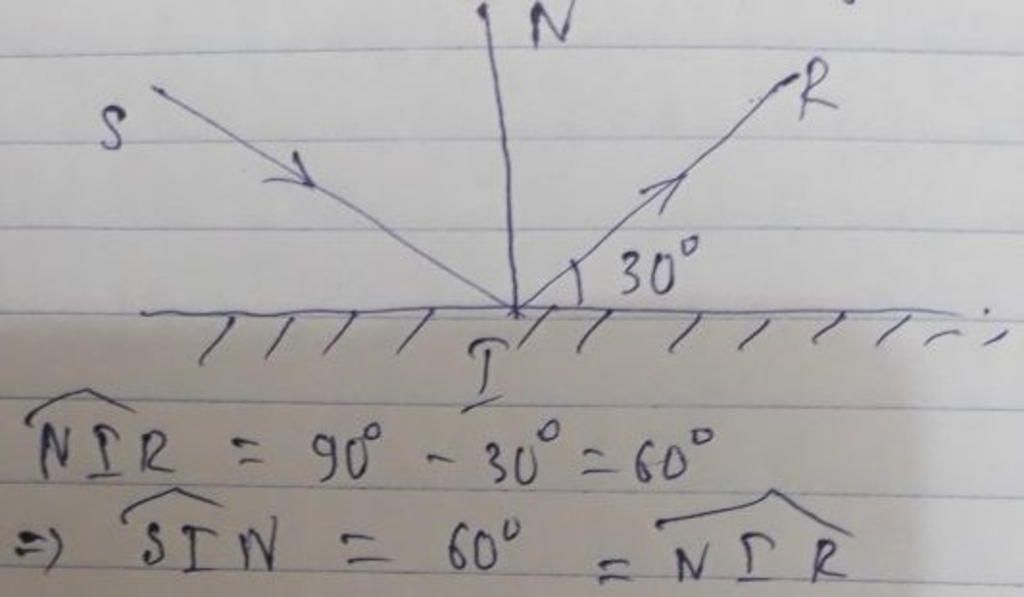 N
S
R
30°
I
NIR = 90° - 30° = 60°
=> SIN = 60° = NIR